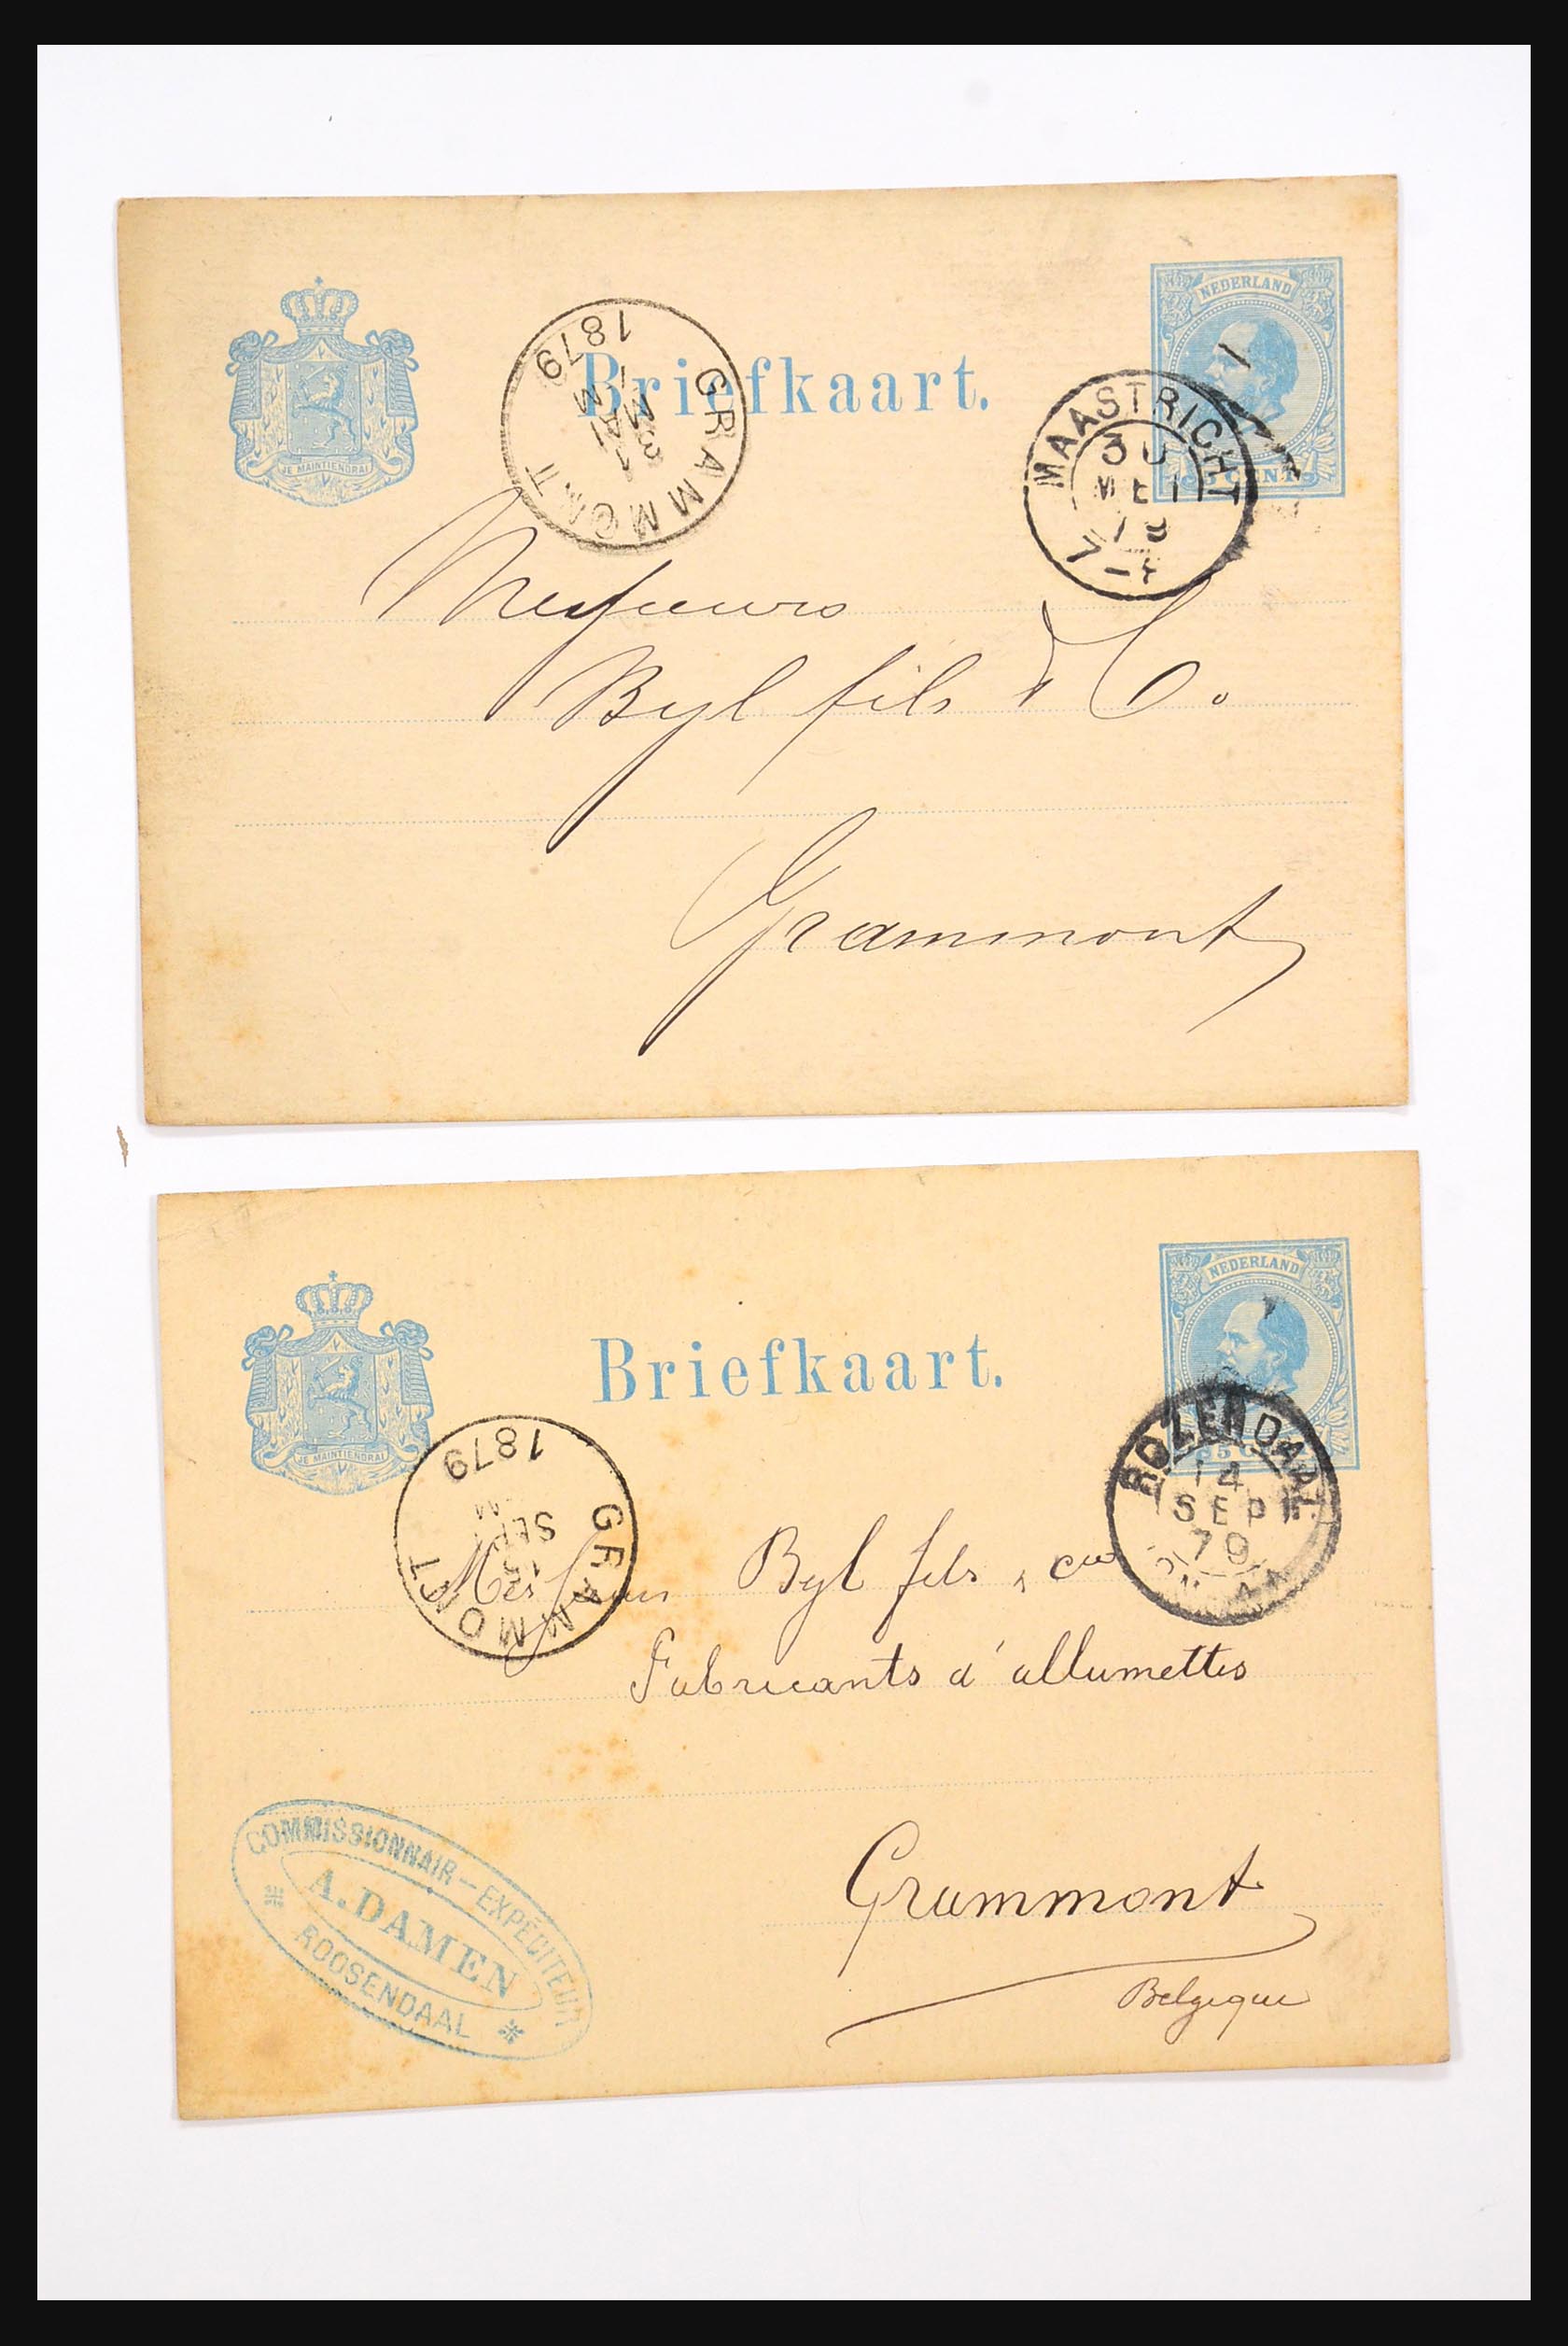 NEDERLAND
Briefkaart.
JE MAINTIENDRAI
5 CENT
GRAMMONT
31
MAI
1879
MAASTRICHT
30
MEI
79
Messieurs
Byl fils & C.
Grammont
NEDERLAND
Briefkaart.
JE MAINTIENDRAI
GRAMMONT
SEPT
1879
ROZENDAAL
14
SEP
79
Messieurs Byl fils & Cie
Fabricants d'allumettes
Grammont
Belgique
COMMISSIONNAIR-EXPÉDITEUR
A. DAMEN
ROOSENDAAL